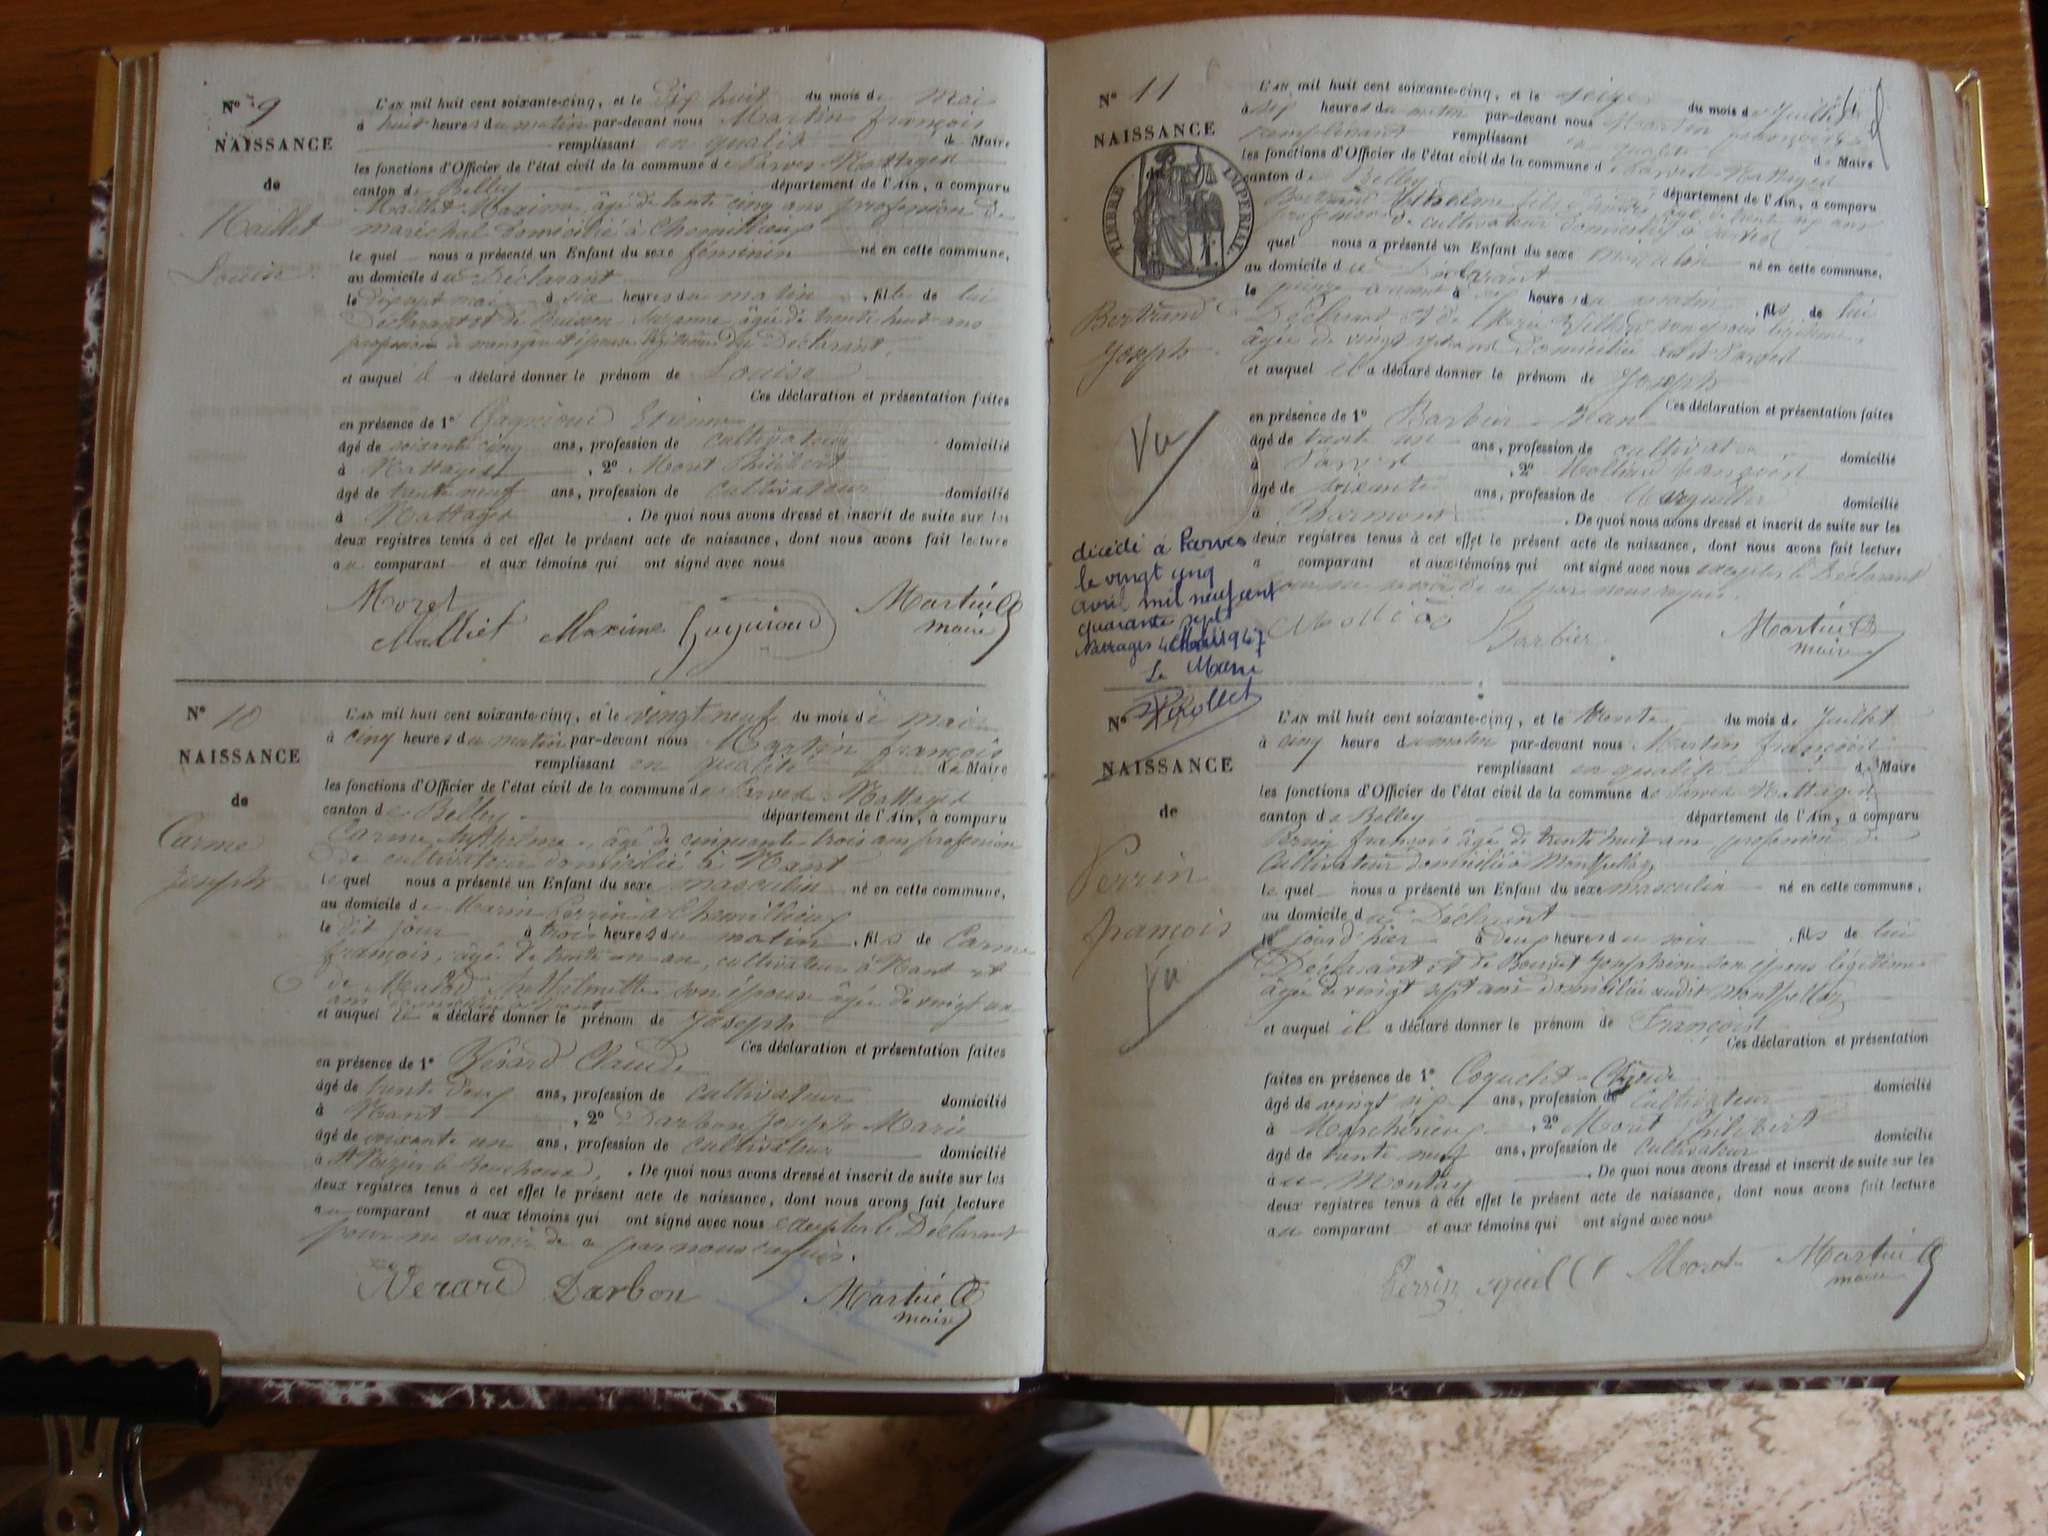 N° 9
NAISSANCE
de
Maillet
Louise
L'AN mil huit cent soixante-cinq, et le Dix huit du mois de Mai
à huit heures du matin par-devant nous Martin françois
remplissant en qualité de Maire
les fonctions d'Officier de l'état civil de la commune de Parves-Nattages
canton de Belley département de l'Ain, a comparu
Maillet Maxime, âgé de trente cinq ans profession de
maréchal domicilié à Chemillieu
le quel nous a présenté un Enfant du sexe féminin né en cette commune,
au domicile du Déclarant
le Dix sept mai à six heures du matin, fille de lui
Déclarant et de Buisson Suzanne âgée de trente huit ans
profession de épouse légitime du Déclarant,
et auquel il a déclaré donner le prénom de Louise
Ces déclaration et présentation faites
en présence de 1° Etienne
âgé de soixante cinq ans, profession de cultivateur domicilié
à Nattages, 2° Moret Philibert
âgé de trente neuf ans, profession de cultivateur domicilié
à Nattages. De quoi nous avons dressé et inscrit de suite sur les
deux registres tenus à cet effet le présent acte de naissance, dont nous avons fait lecture
au comparant et aux témoins qui ont signé avec nous
Moret
Maillet Maxime Martin
maire
N° 10
NAISSANCE
de
Carme
Joseph
L'AN mil huit cent soixante-cinq, et le vingt neuf du mois de mai
à cinq heures du matin par-devant nous Martin françois
remplissant en qualité de Maire
les fonctions d'Officier de l'état civil de la commune de Parves-Nattages
canton de Belley département de l'Ain, à comparu
Carme Anthelme, âgé de cinquante trois ans profession
de cultivateur domicilié à Nant
le quel nous a présenté un Enfant du sexe masculin né en cette commune,
au domicile de Marin Perrin à Chemillieu
le dit jour à trois heures du matin, fils de Carme
françois, âgé de trente un an, cultivateur à Nant et
de Anthelmette son épouse âgée de vingt
ans domiciliée à Nant
et auquel il a déclaré donner le prénom de Joseph
Ces déclaration et présentation faites
en présence de 1° Vérard Claude
âgé de trente deux ans, profession de cultivateur domicilié
à Nant, 2° Darbon Joseph Marie
âgé de soixante un ans, profession de cultivateur domicilié
à. De quoi nous avons dressé et inscrit de suite sur les
deux registres tenus à cet effet le présent acte de naissance, dont nous avons fait lecture
au comparant et aux témoins qui ont signé avec nous excepter le Déclarant
pour ne savoir de ce par nous requis.
Verard Darbon Martin
maire
N° 11
NAISSANCE
TIMBRE IMPERIAL
Bertrand
Joseph
Vu
décédé à Parves
le vingt cinq
avril mil neuf cent
quarante sept
1947
Le Maire
L'AN mil huit cent soixante-cinq, et le seize du mois de Juillet
à six heures du matin par-devant nous Martin françois
remplissant remplissant en qualité de Maire
les fonctions d'Officier de l'état civil de la commune de Parves-Nattages
canton de Belley département de l'Ain, a comparu
Bertrand
profession de cultivateur domicilié à Parves
quel nous a présenté un Enfant du sexe masculin né en cette commune,
au domicile du Déclarant
le quinze à six heures du matin, fils de lui
Déclarant et de Marie son épouse légitime
âgée de vingt sept ans domiciliée à Parves
et auquel il a déclaré donner le prénom de Joseph
Ces déclaration et présentation faites
en présence de 1° Barbier Jean
âgé de trente un ans, profession de cultivateur domicilié
à Parves, 2° françois
âgé de soixante ans, profession de domicilié
à. De quoi nous avons dressé et inscrit de suite sur les
deux registres tenus à cet effet le présent acte de naissance, dont nous avons fait lecture
a comparant et aux témoins qui ont signé avec nous excepter le Déclarant
pour ne savoir de ce par nous requis
Barbier Martin
maire
N°
NAISSANCE
de
Perrin
françois
Vu
L'AN mil huit cent soixante-cinq, et le trente du mois de Juillet
à cinq heure du matin par-devant nous Martin françois
remplissant en qualité de Maire
les fonctions d'Officier de l'état civil de la commune de Parves-Nattages
canton de Belley département de l'Ain, a comparu
Perrin françois âgé de trente huit ans profession de
Cultivateur domicilié à Montpellaz
le quel nous a présenté un Enfant du sexe masculin né en cette commune,
au domicile du Déclarant
le jour d'hier à deux heures du soir, fils de lui
Déclarant et de Josephine son épouse légitime
âgée de vingt sept ans domiciliée audit Montpellaz
et auquel il a déclaré donner le prénom de François
Ces déclaration et présentation
faites en présence de 1° Coquelet Claude
âgé de vingt six ans, profession de Cultivateur domicilié
à, 2° Moret Philibert
âgé de trente neuf ans, profession de Cultivateur domicilié
au Montay. De quoi nous avons dressé et inscrit de suite sur les
deux registres tenus à cet effet le présent acte de naissance, dont nous avons fait lecture
au comparant et aux témoins qui ont signé avec nous
Perrin Moret Martin
maire